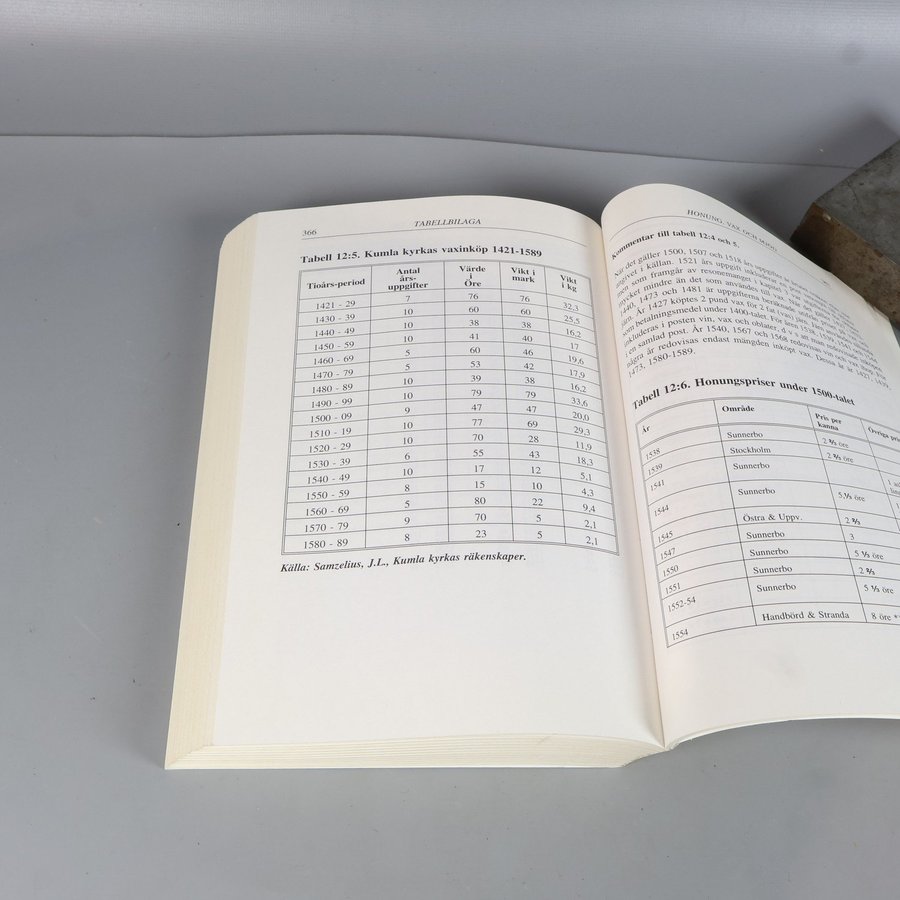 366 TABELLBILAGA
Tabell 12:5. Kumla kyrkas vaxinköp 1421-1589
Tioårs-period Antal års-uppgifter Värde i Öre Vikt i mark Vikt i kg
1421 - 29 7 76 76 32,3
1430 - 39 10 60 60 25,5
1440 - 49 10 38 38 16,2
1450 - 59 10 41 40 17
1460 - 69 10 60 46 19,6
1470 - 79 5 53 42 17,9
1480 - 89 10 39 38 16,2
1490 - 99 10 79 79 33,6
1500 - 09 9 47 47 20,0
1510 - 19 10 77 69 29,3
1520 - 29 10 70 28 11,9
1530 - 39 6 55 43 18,3
1540 - 49 10 17 12 5,1
1550 - 59 8 15 10 4,3
1560 - 69 5 80 22 9,4
1570 - 79 9 70 5 2,1
1580 - 89 8 23 5 2,1
Källa: Samzelius, J.L., Kumla kyrkas räkenskaper.
HONUNG, VAX OCH MJÖD
Kommentar till tabell 12:4 och 5.
När det gäller 1500, 1507 och 1518 års uppgifter
angivet i källan. 1521 års uppgift inkluderar
gen som framgår av resonemanget i kapitel
mycket mindre än det som användes till vax. När det gäller
1440, 1473 och 1481 är uppgifterna beräknade
våra. År 1427 köptes 2 pund vax för 2 får
som betalningsmedel under 1400-talet. För åren 1538, 1539, 1541 och
inkluderas i posten vin, vax och oblater, d v s att man redovisade inköpen
i en samlad post. År 1540, 1567 och 1568 redovisas vin och vax ihop. För
några år redovisas endast mängden inköpt vax. Dessa år är 1427, 1439,
1473, 1580-1589.
Tabell 12:6. Honungspriser under 1500-talet
År Område Pris per kanna Övriga
1538 Sunnerbo 2 ⅔ öre
1539 Stockholm 2 ⅔ öre
1541 Sunnerbo
1544 Sunnerbo 5 ⅓ öre
1545 Östra & Uppv. 2 ⅔
1547 Sunnerbo 3
1550 Sunnerbo 5 ⅓ öre
1551 Sunnerbo 2 ⅔
1552-54 Sunnerbo 5 ⅓ öre
1554 Handbörd & Stranda 8 öre *